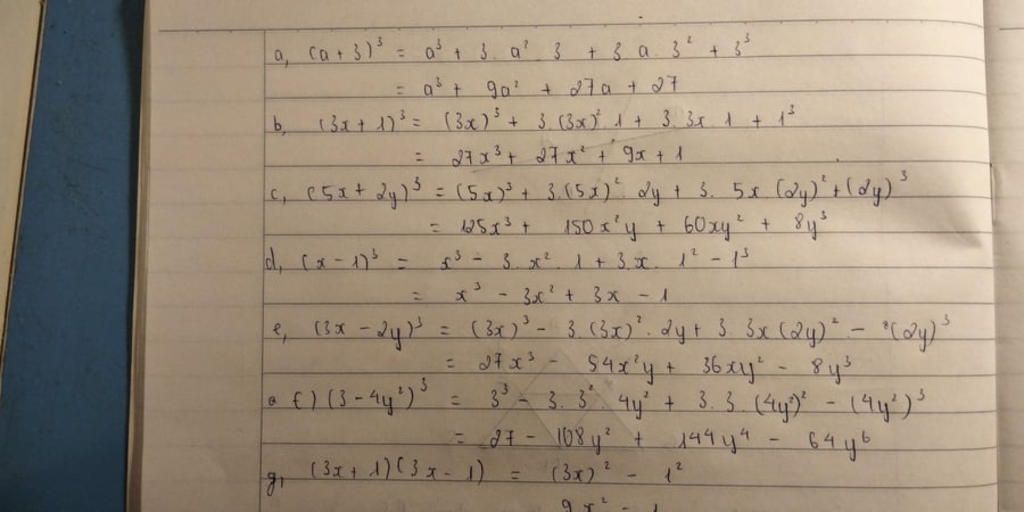 a, (a + 3)³ = a³ + 3. a². 3 + 3 a. 3² + 3³
= a³ + 9a² + 27a + 27
b, (3x + 1)³ = (3x)³ + 3.(3x)². 1 + 3. 3x 1 + 1³
= 27x³ + 27x² + 9x + 1
c, (5x + 2y)³ = (5x)³ + 3.(5x)². 2y + 3. 5x.(2y)² + (2y)³
= 125x³ + 150x²y + 60xy² + 8y³
d, (x - 1)³ = x³ - 3. x². 1 + 3.x. 1² - 1³
= x³ - 3x² + 3x - 1
e, (3x - 2y)³ = (3x)³ - 3.(3x)². 2y + 3 3x(2y)² - (2y)³
= 27x³ - 54x²y + 36xy² - 8y³
f) (3 - 4y²)³ = 3³ - 3. 3² 4y² + 3. 3. (4y²)² - (4y²)³
= 27 - 108y² + 144y⁴ - 64y⁶
g, (3x + 1)(3x - 1) = (3x)² - 1²
9x² - 1